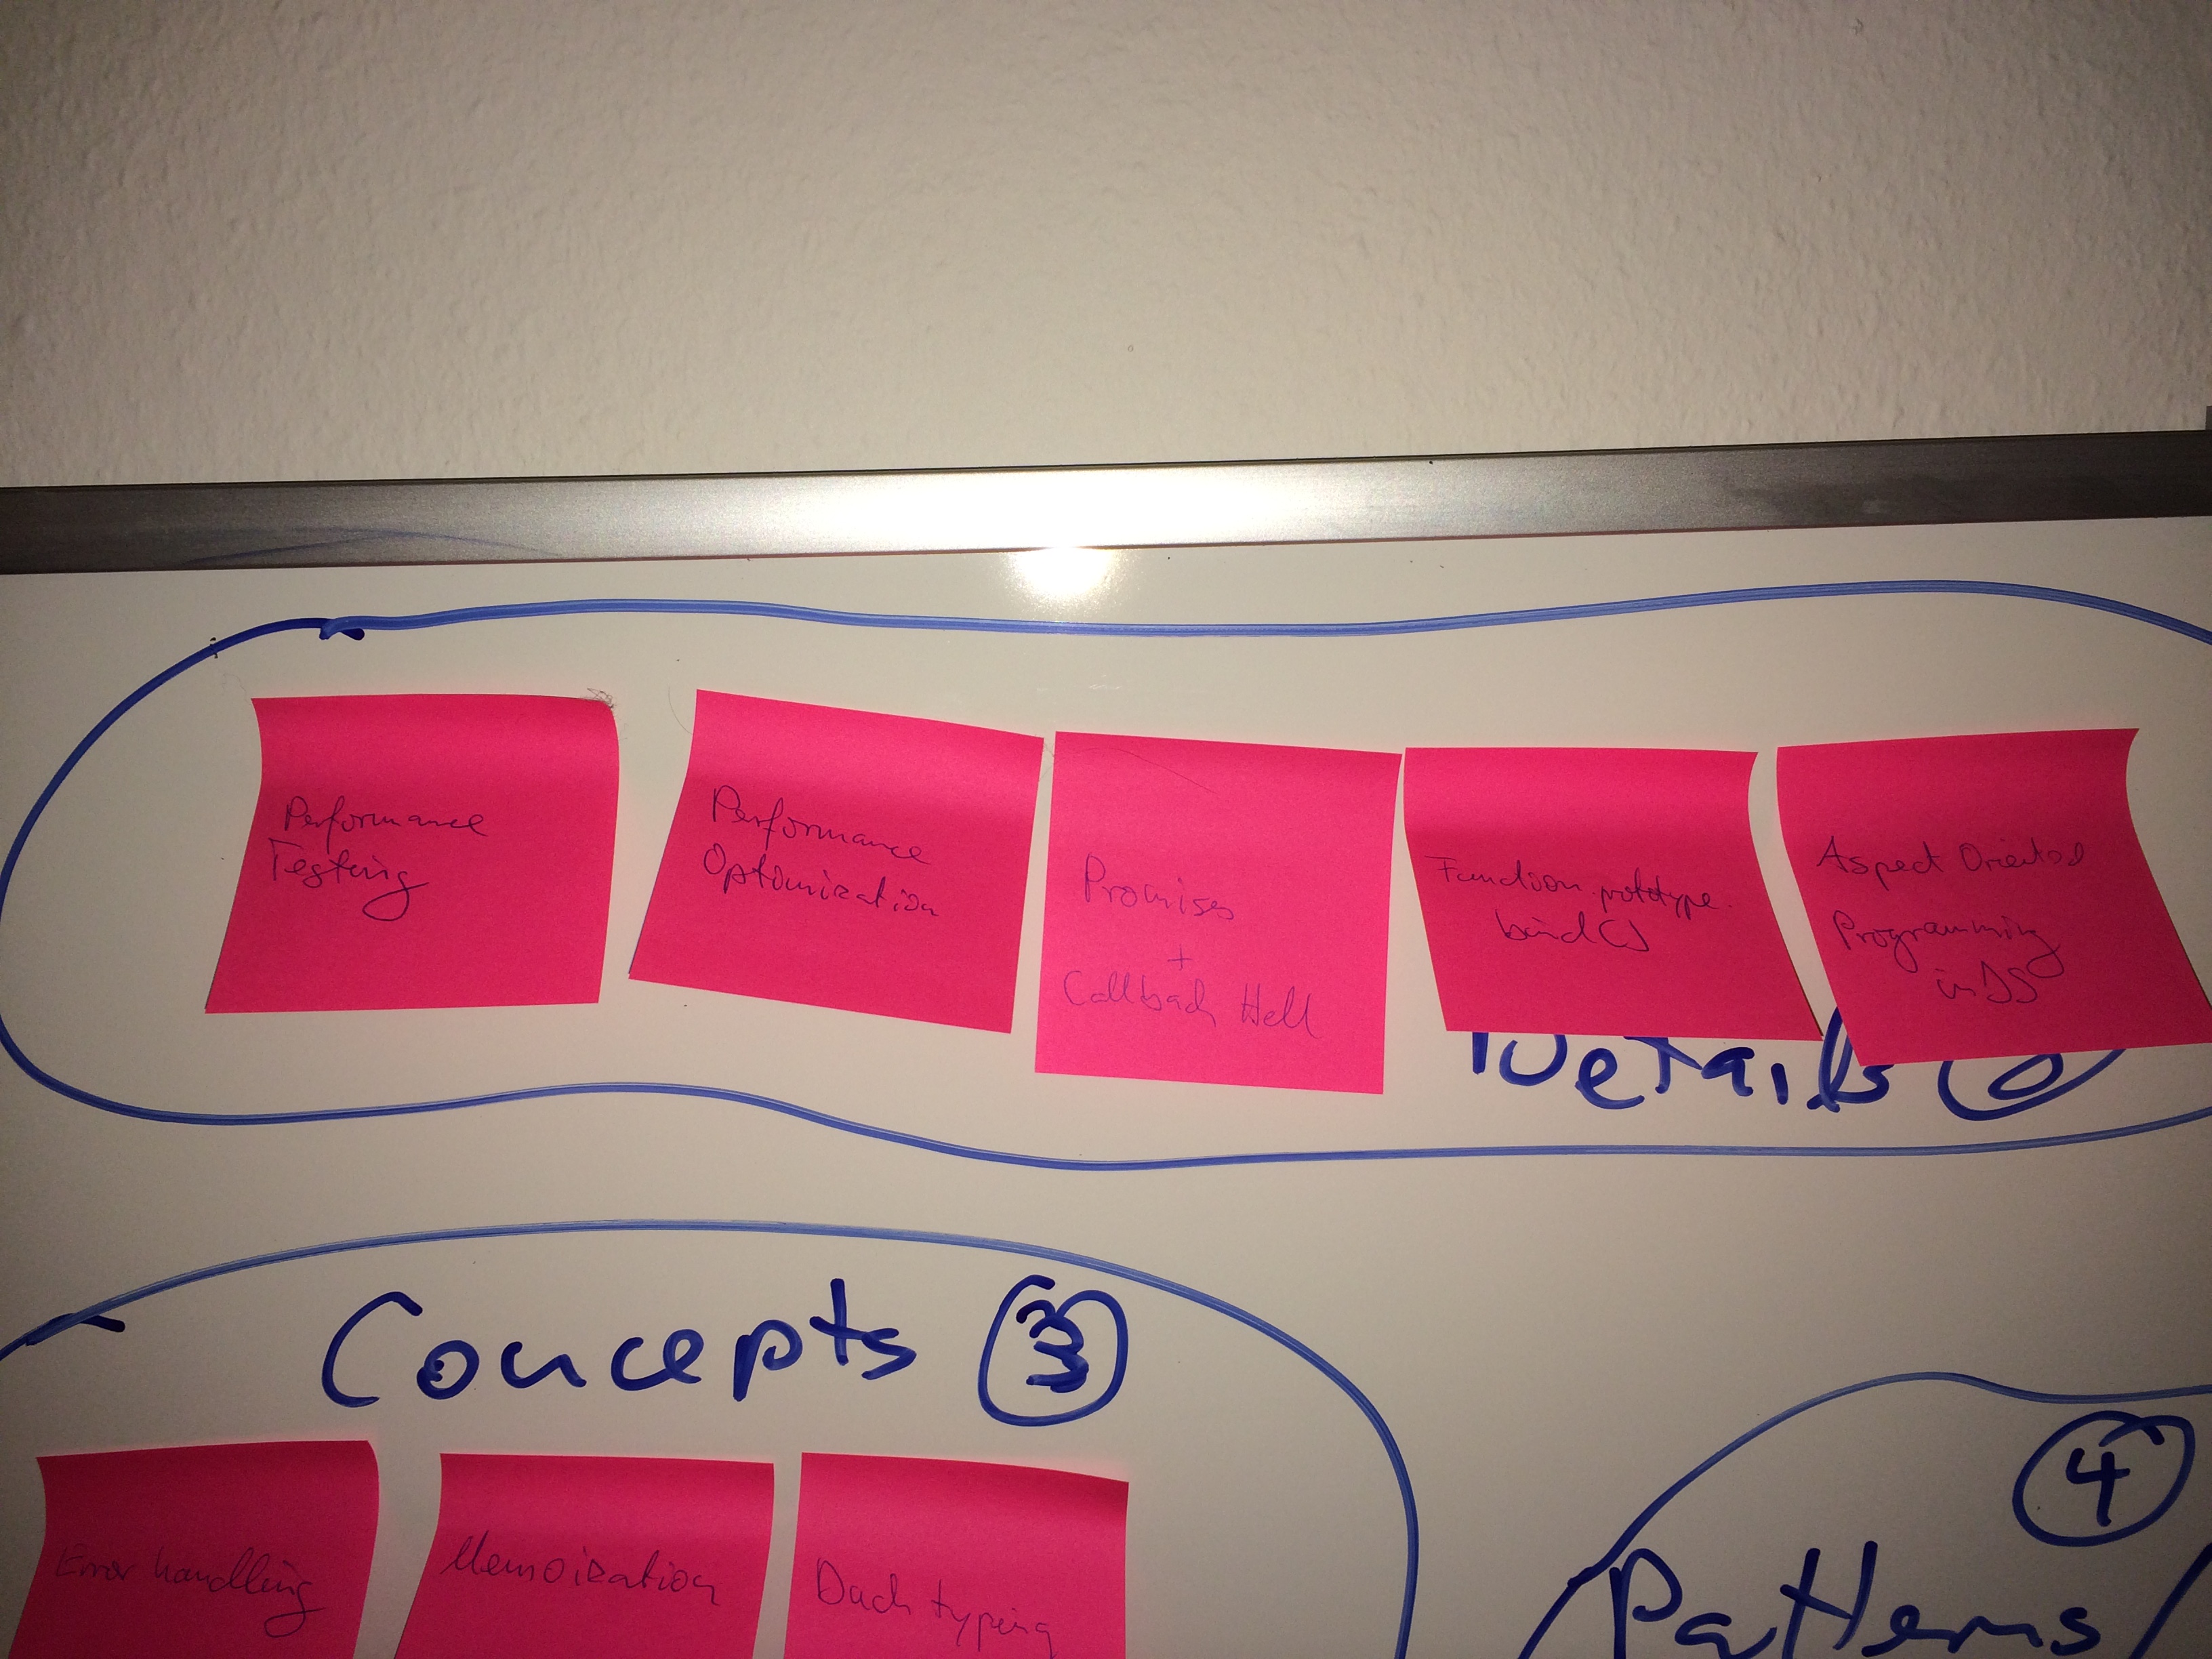 Performance
Testing
Performance
Optomization
Promises
+
Callback Hell
Function.prototype.
bind()
Aspect Oriented
Programming
in JS
Details
Concepts 3
Error handling
Memoization
Duck typing
4
Patterns/